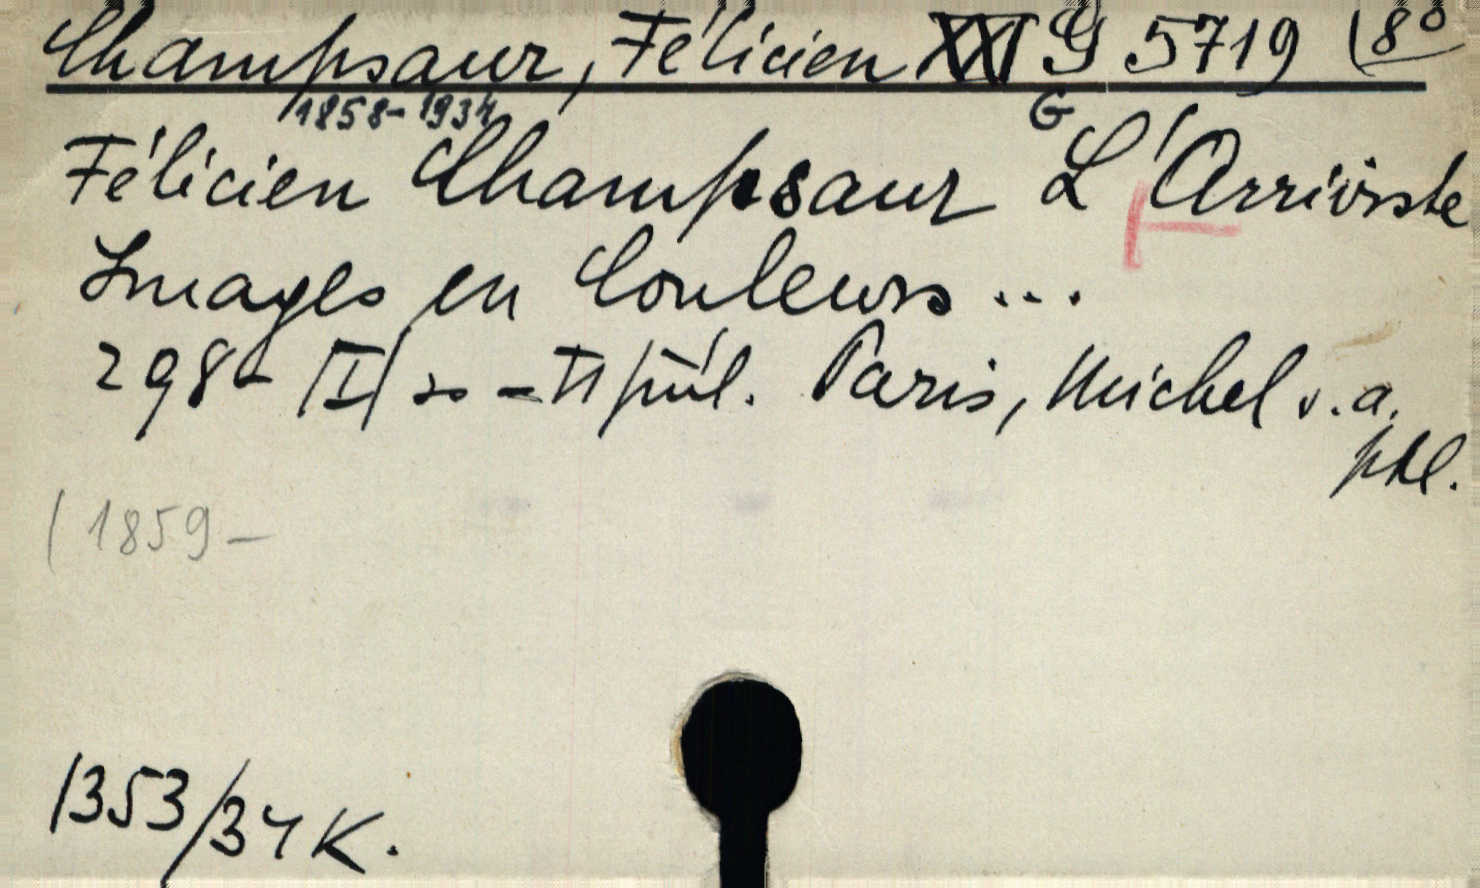 Champsaur, Félicien XXI G 5719 (8°
1858-1934 G
Félicien Champsaur L'Arriviste
Images en Couleurs ...
298- [I] Paris, Michel s.a.
(1859-
1353/34 K.